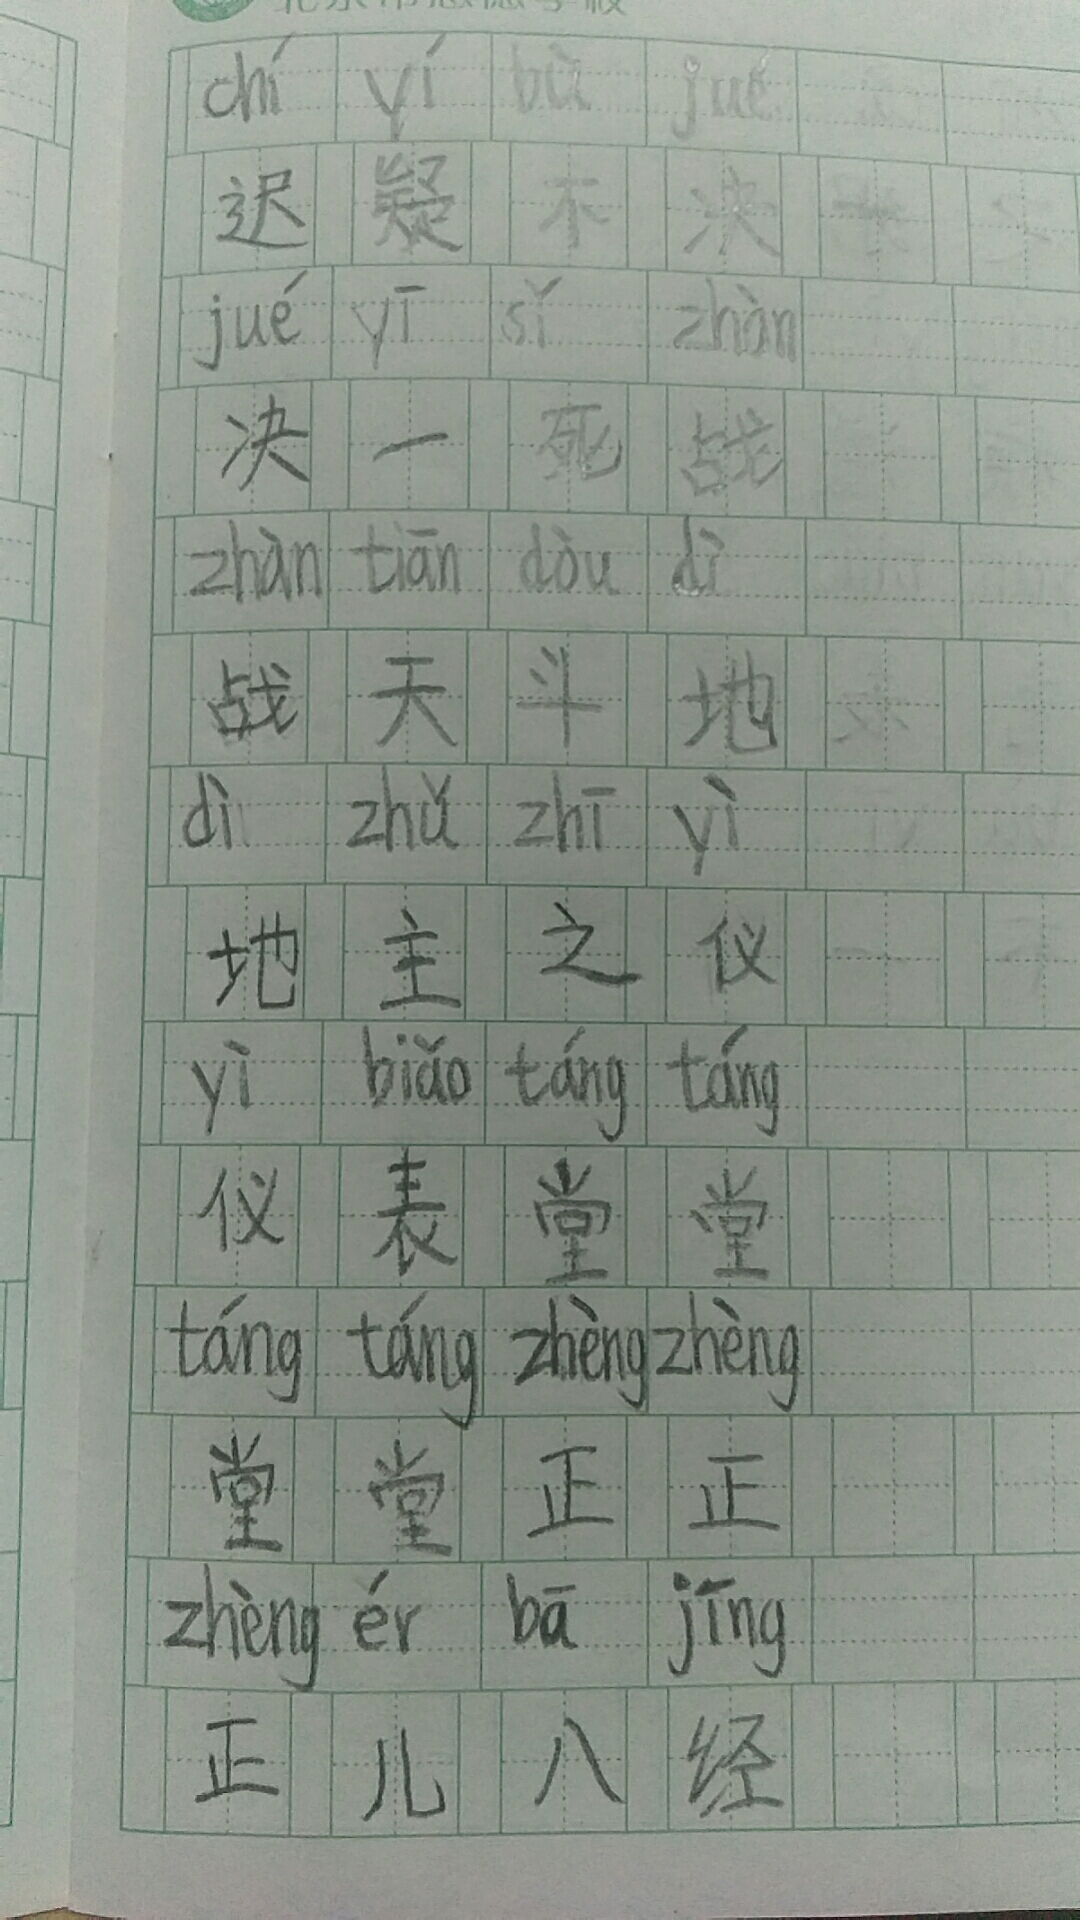 chí yí bù jué
迟疑不决
jué yī sǐ zhàn
决一死战
zhàn tiān dòu dì
战天斗地
dì zhǔ zhī yì
地主之仪
yì biǎo táng táng
仪表堂堂
táng táng zhèng zhèng
堂堂正正
zhèng ér bā jīng
正儿八经